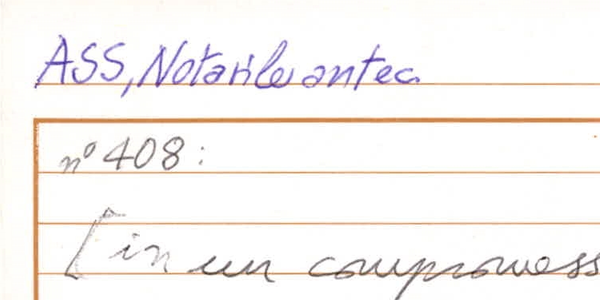 ASS, Notarile antec.
n° 408:
[in un compromess